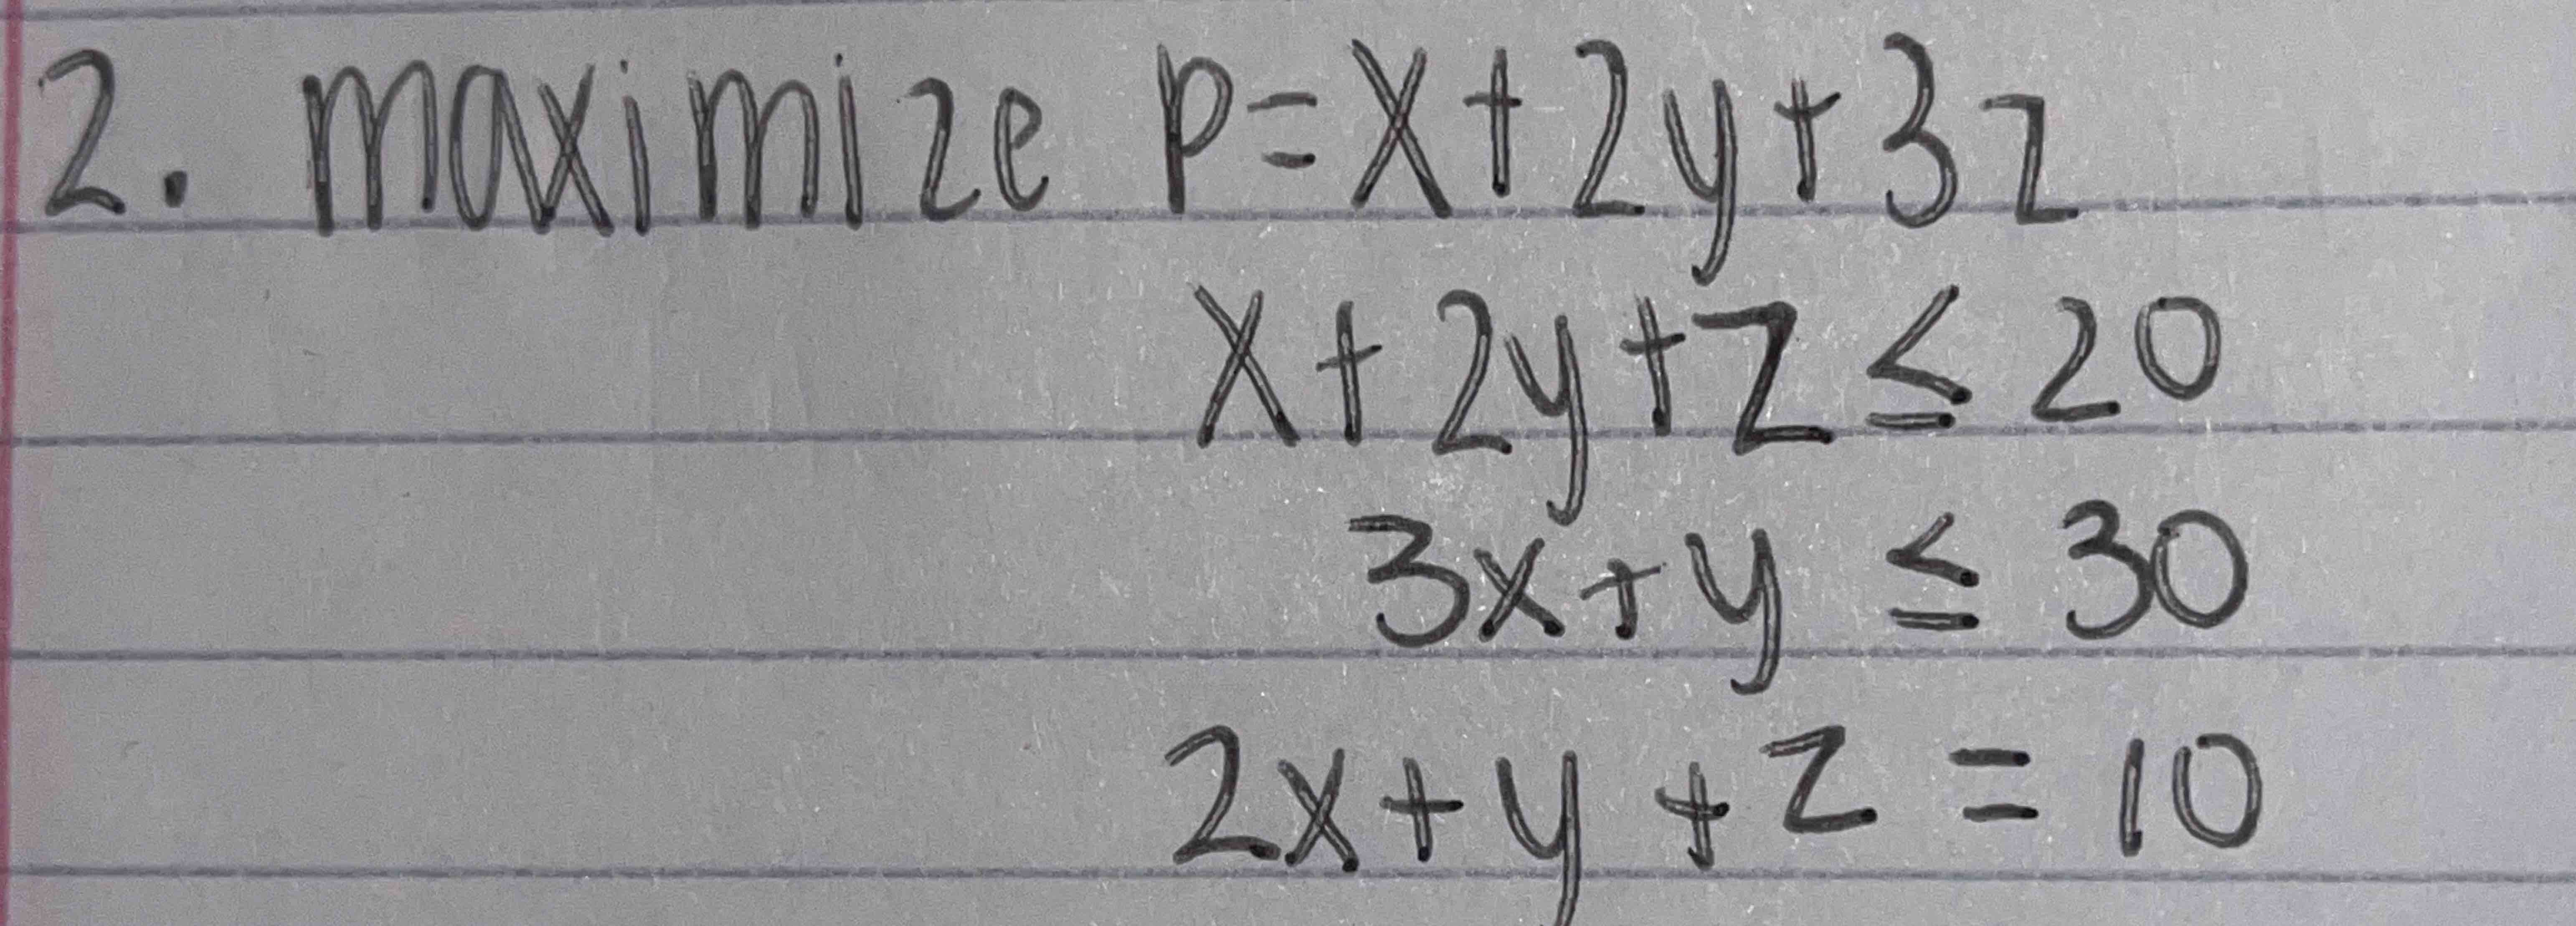 2. maximize P=x+2y+3z
x+2y+z ≤ 20
3x+y ≤ 30
2x+y+z = 10